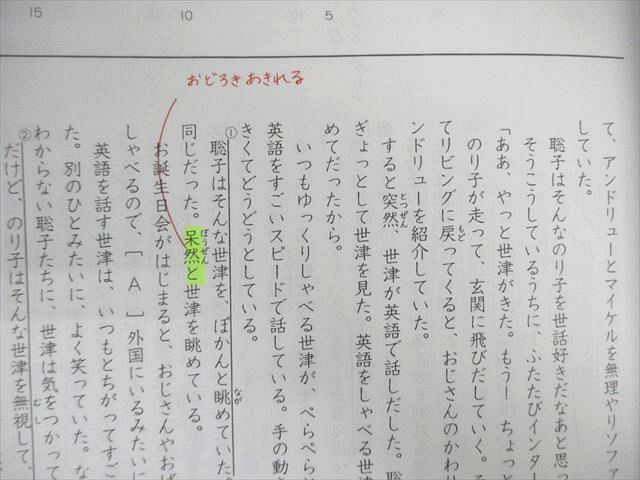 15
10
5
おどろきあきれる
て、アンドリューとマイケルを無理やりソファ
していた。
聡子はそんなのり子を世話好きだなあと思っ
そうこうしているうちに、ふたたびインター
「ああ、やっと世津がきた。もう! ちょっと
のり子が走って、玄関に飛びだしていく。
てリビングに戻ってくると、おじさんのかわり
もど
ンドリューを紹介していた。
すると突然、世津が英語で話しだした。聡
とつぜん
ぎょっとして世津を見た。英語をしゃべる世津
めてだったから。
いつもゆっくりしゃべる世津が、ぺらぺらと
英語をすごいスピードで話している。手の動き
きくてどうどうとしている。
①聡子はそんな世津を、ぽかんと眺めていた。
なが
同じだった。呆然と世津を眺めている。
ぼうぜん
お誕生日会がはじまると、おじさんやおば
しゃべるので、[ A ]外国にいるみたいに
英語を話す世津は、いつもとちがってすご
た。別のひとみたいに、よく笑っていた。な
わからない聡子たちに、世津は気をつかって
②だけど、のり子はそんな世津を無視して、
むし